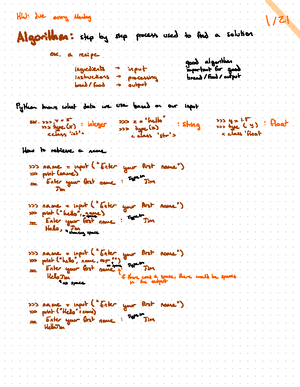 HW: due every Monday
1/21
Algorithm: step by step process used to find a solution
ex. a recipe
good algorithm
ingredients → input
important for good
instructions → processing
bread/food/output
bread/food → output
Python knows what data we use based on our input
ex. >>> x = 5
>>> type(x) : integer
<class 'int'>
>>> x = "hello"
>>> type (x) : string
<class 'str'>
>>> y = 1.5
>>> type (y) : float
<class 'float'
How to retrieve a name
>>> name = input ("Enter your first name")
>>> print (name)
Enter your first name : Jim
Jim
>>> name = input ("Enter your first name")
>>> print ("hello", name)
Enter your first name : Jim
Hello, Jim
>>> name = input ("Enter your first name")
>>> print ("hello", name, sep="")
Enter your first name : Jim
HelloJim
no space
if there was a space, there would be space
in the output
>>> name = input ("Enter your first name")
>>> print ("Hello"+name)
Enter your first name : Jim
HelloJim